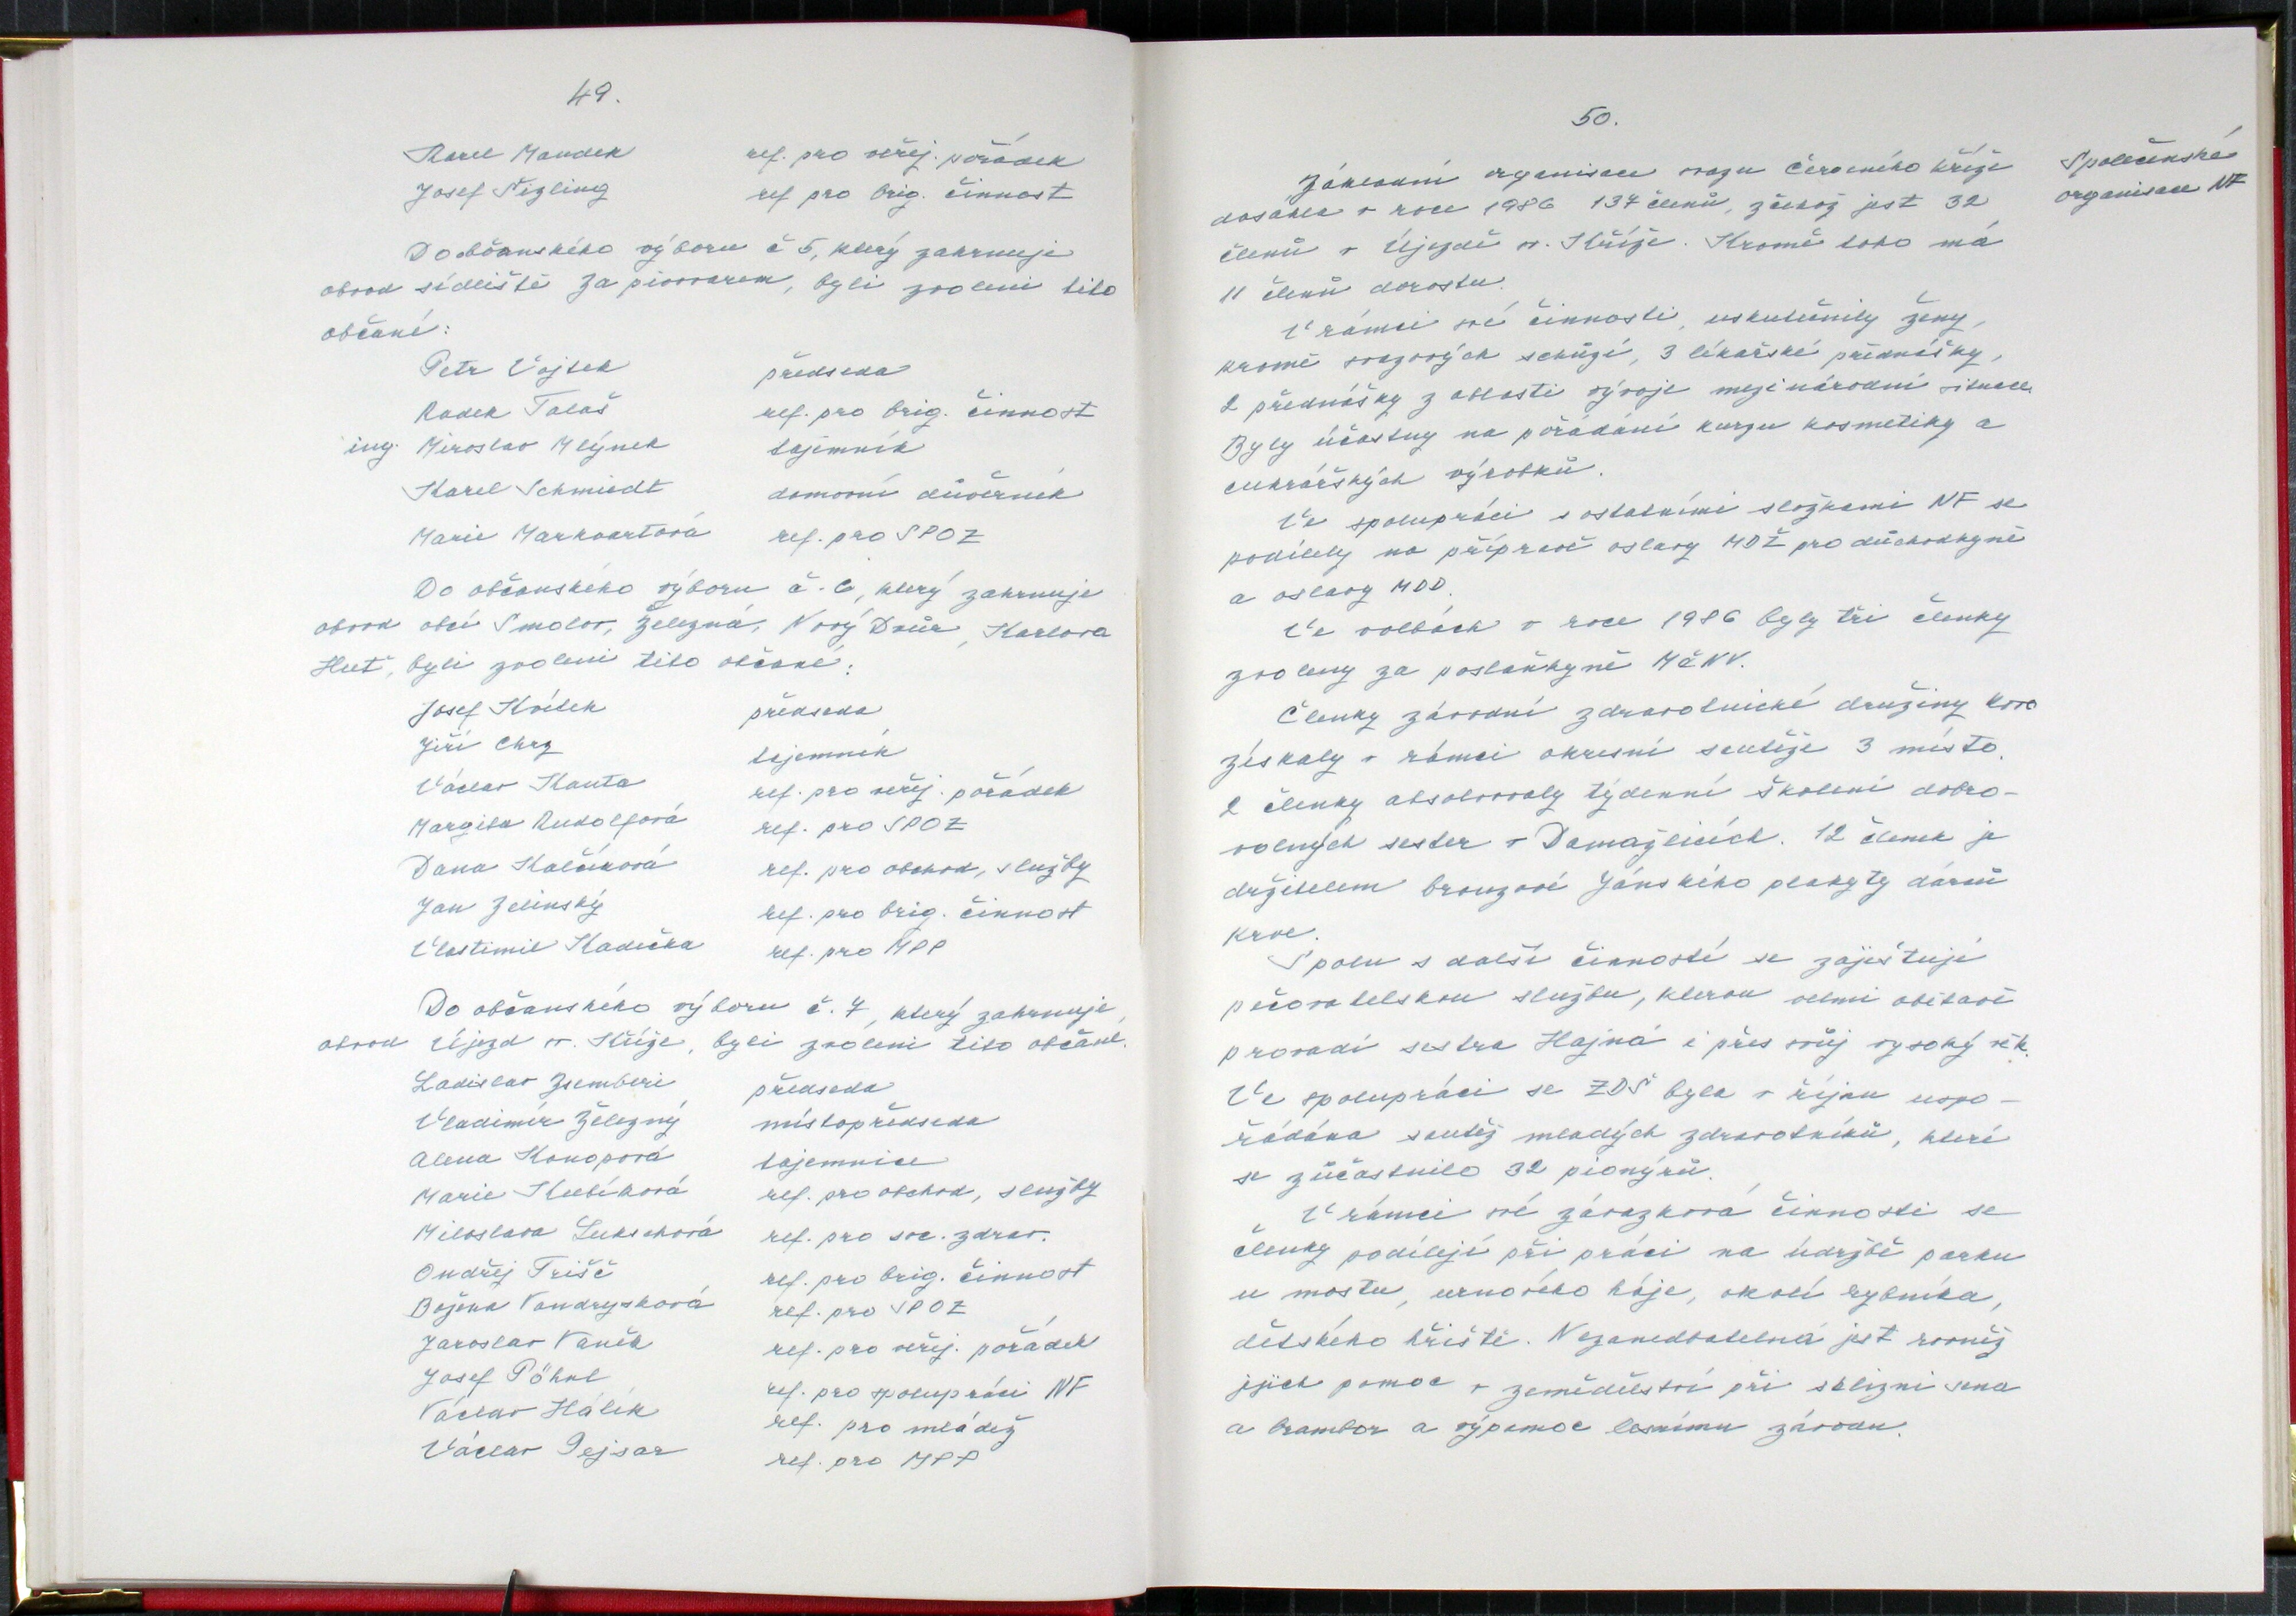 49.
Karel Maudek ref. pro veřej. pořádek
Josef Nizling ref pro brig. činnost
Do občanského výboru č 5, který zahrnuje
obvod sídliště za pivovarem, byli zvoleni tito
občané:
Petr Vojtek předseda
Radek Talaš ref. pro brig. činnost
ing. Miroslav Mlýnek tajemník
Karel Schmiedt domovní důvěrník
Marie Markvartová ref. pro SPOZ
Do občanského výboru č. 6, který zahrnuje
obvod obcí Smolov, Železná, Nový Dvůr, Karlova
Huť, byli zvoleni tito občané:
Josef Kvítek předseda
Jiří Chrz tajemník
Václav Kauta ref. pro veřej. pořádek
Margita Rudolfová ref. pro SPOZ
Dana Kalčíková ref. pro obchod, služby
Jan Zelinský ref. pro brig. činnost
Vlastimil Kadička ref. pro MPP
Do občanského výboru č. 7, který zahrnuje
obvod Újezd sv. Kříže, byli zvoleni tito občané.
Ladislav Zsemberi předseda
Vladimír Železný místopředseda
Alena Konopová tajemnice
Marie Kubíková ref. pro obchod, služby
Miloslava Lukschová ref. pro soc. zdrav.
Ondřej Trišč ref. pro brig. činnost
Božena Vondrysková ref. pro SPOZ
Jaroslav Vaněk ref. pro veřej. pořádek
Josef Pöhnl ref. pro spolupráci NF
Václav Hálek ref. pro mládež
Václav Pejsar ref. pro MPP
50.
Společenské
organisace NF
Základní organisace svazu Červeného kříže
dosáhla v roce 1986 137 členů, z čehož jest 32
členů v Újezdě sv. Kříže. Kromě toho má
11 členů dorostu.
V rámci své činnosti, uskutečnily ženy,
kromě svazových schůzí, 3 lékařské přednášky,
2 přednášky z oblasti vývoje mezinárodní situace.
Byly účastny na pořádání kurzu kosmetiky a
cukrářských výrobků.
Ve spolupráci s ostatními složkami NF se
podílely na přípravě oslavy MDŽ pro důchodkyně
a oslavy MDD.
Ve volbách v roce 1986 byly tři členky
zvoleny za poslankyně MěNV.
Členky závodní zdravotnické družiny
získaly v rámci okresní soutěže 3 místo.
2 členky absolvovaly týdenní školení dobro-
volných sester v Domažlicích. 12 členek je
držitelem bronzové Jánského plakyty dárců
krve.
Spolu s další činností se zajištuje
pečovatelskou službu, kterou velmi obětavě
provadí sestra Hajná i přes svůj vysoký věk.
Ve spolupráci se ZDŠ byla v říjnu uspo-
řádána soutěž mladých zdravotníků, které
se zůčastnilo 32 pionýrů.
V rámci své závazková činnosti se
členky podílejí při práci na údržbě parku
u mostu, urnového háje, okolí rybníka,
dětského hřiště. Nezanedbatelná jest rovněž
jejich pomoc v zemědělství při sklizni sena
a brambor a výpomoc lesnímu závodu.